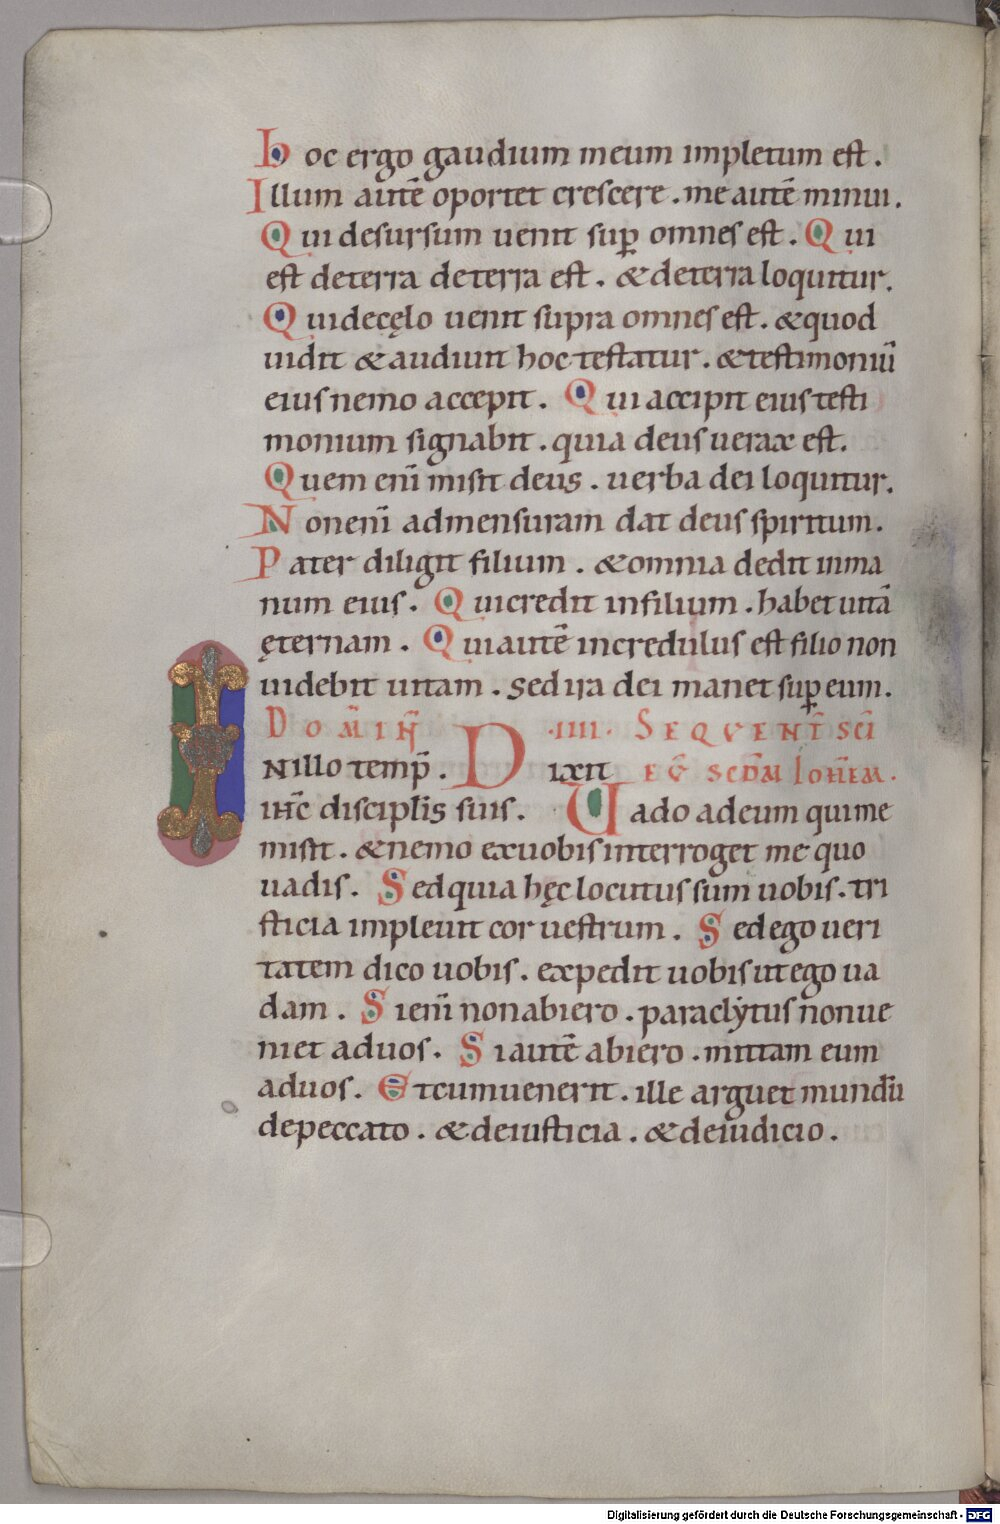 Hoc ergo gaudium meum impletum est.
Illum autē oportet crescere. me autē minui.
Qui desursum uenit sup̱ omnes est. Qui
est deterra deterra est. & deterra loquitur.
Quidecęlo uenit supra omnes est. & quod
uidit & audiuit hoc testatur. & testimoniū
eius nemo accepit. Qui accipit eius testi
monium signabit. quia deus uerax est.
Quem eni̅ misit deus. uerba dei loquitur.
Noneni̅ admensuram dat deus spiritum.
Pater diligit filium. & omnia dedit inma
num eius. Quicredit infilium. habet uitā
ęternam. Quiautē incredulus est filio non
uidebit uitam. Sed ira dei manet sup̱ eum.
DOMIN̄ .IIII. SEQVENT̄ SC̄I
EG̅ SCD̅M IOH̅EM.
INillo temp̅. Dixit
ih̅c discipl̅is suis. Uado adeum quime
misit. & nemo exuobis interroget me quo
uadis. Sedquia hęc locutus sum uobis. tri
sticia impleuit cor uestrum. Sed ego ueri
tatem dico uobis. expedit uobis ut ego ua
dam. Sieni̅ nonabiero. paraclẏtus nonue
niet aduos. Siautē abiero. mittam eum
aduos. Etcumuenerit. ille arguet mundū
depeccato. & deiusticia. & deiudicio.
Digitalisierung gefördert durch die Deutsche Forschungsgemeinschaft - DFG